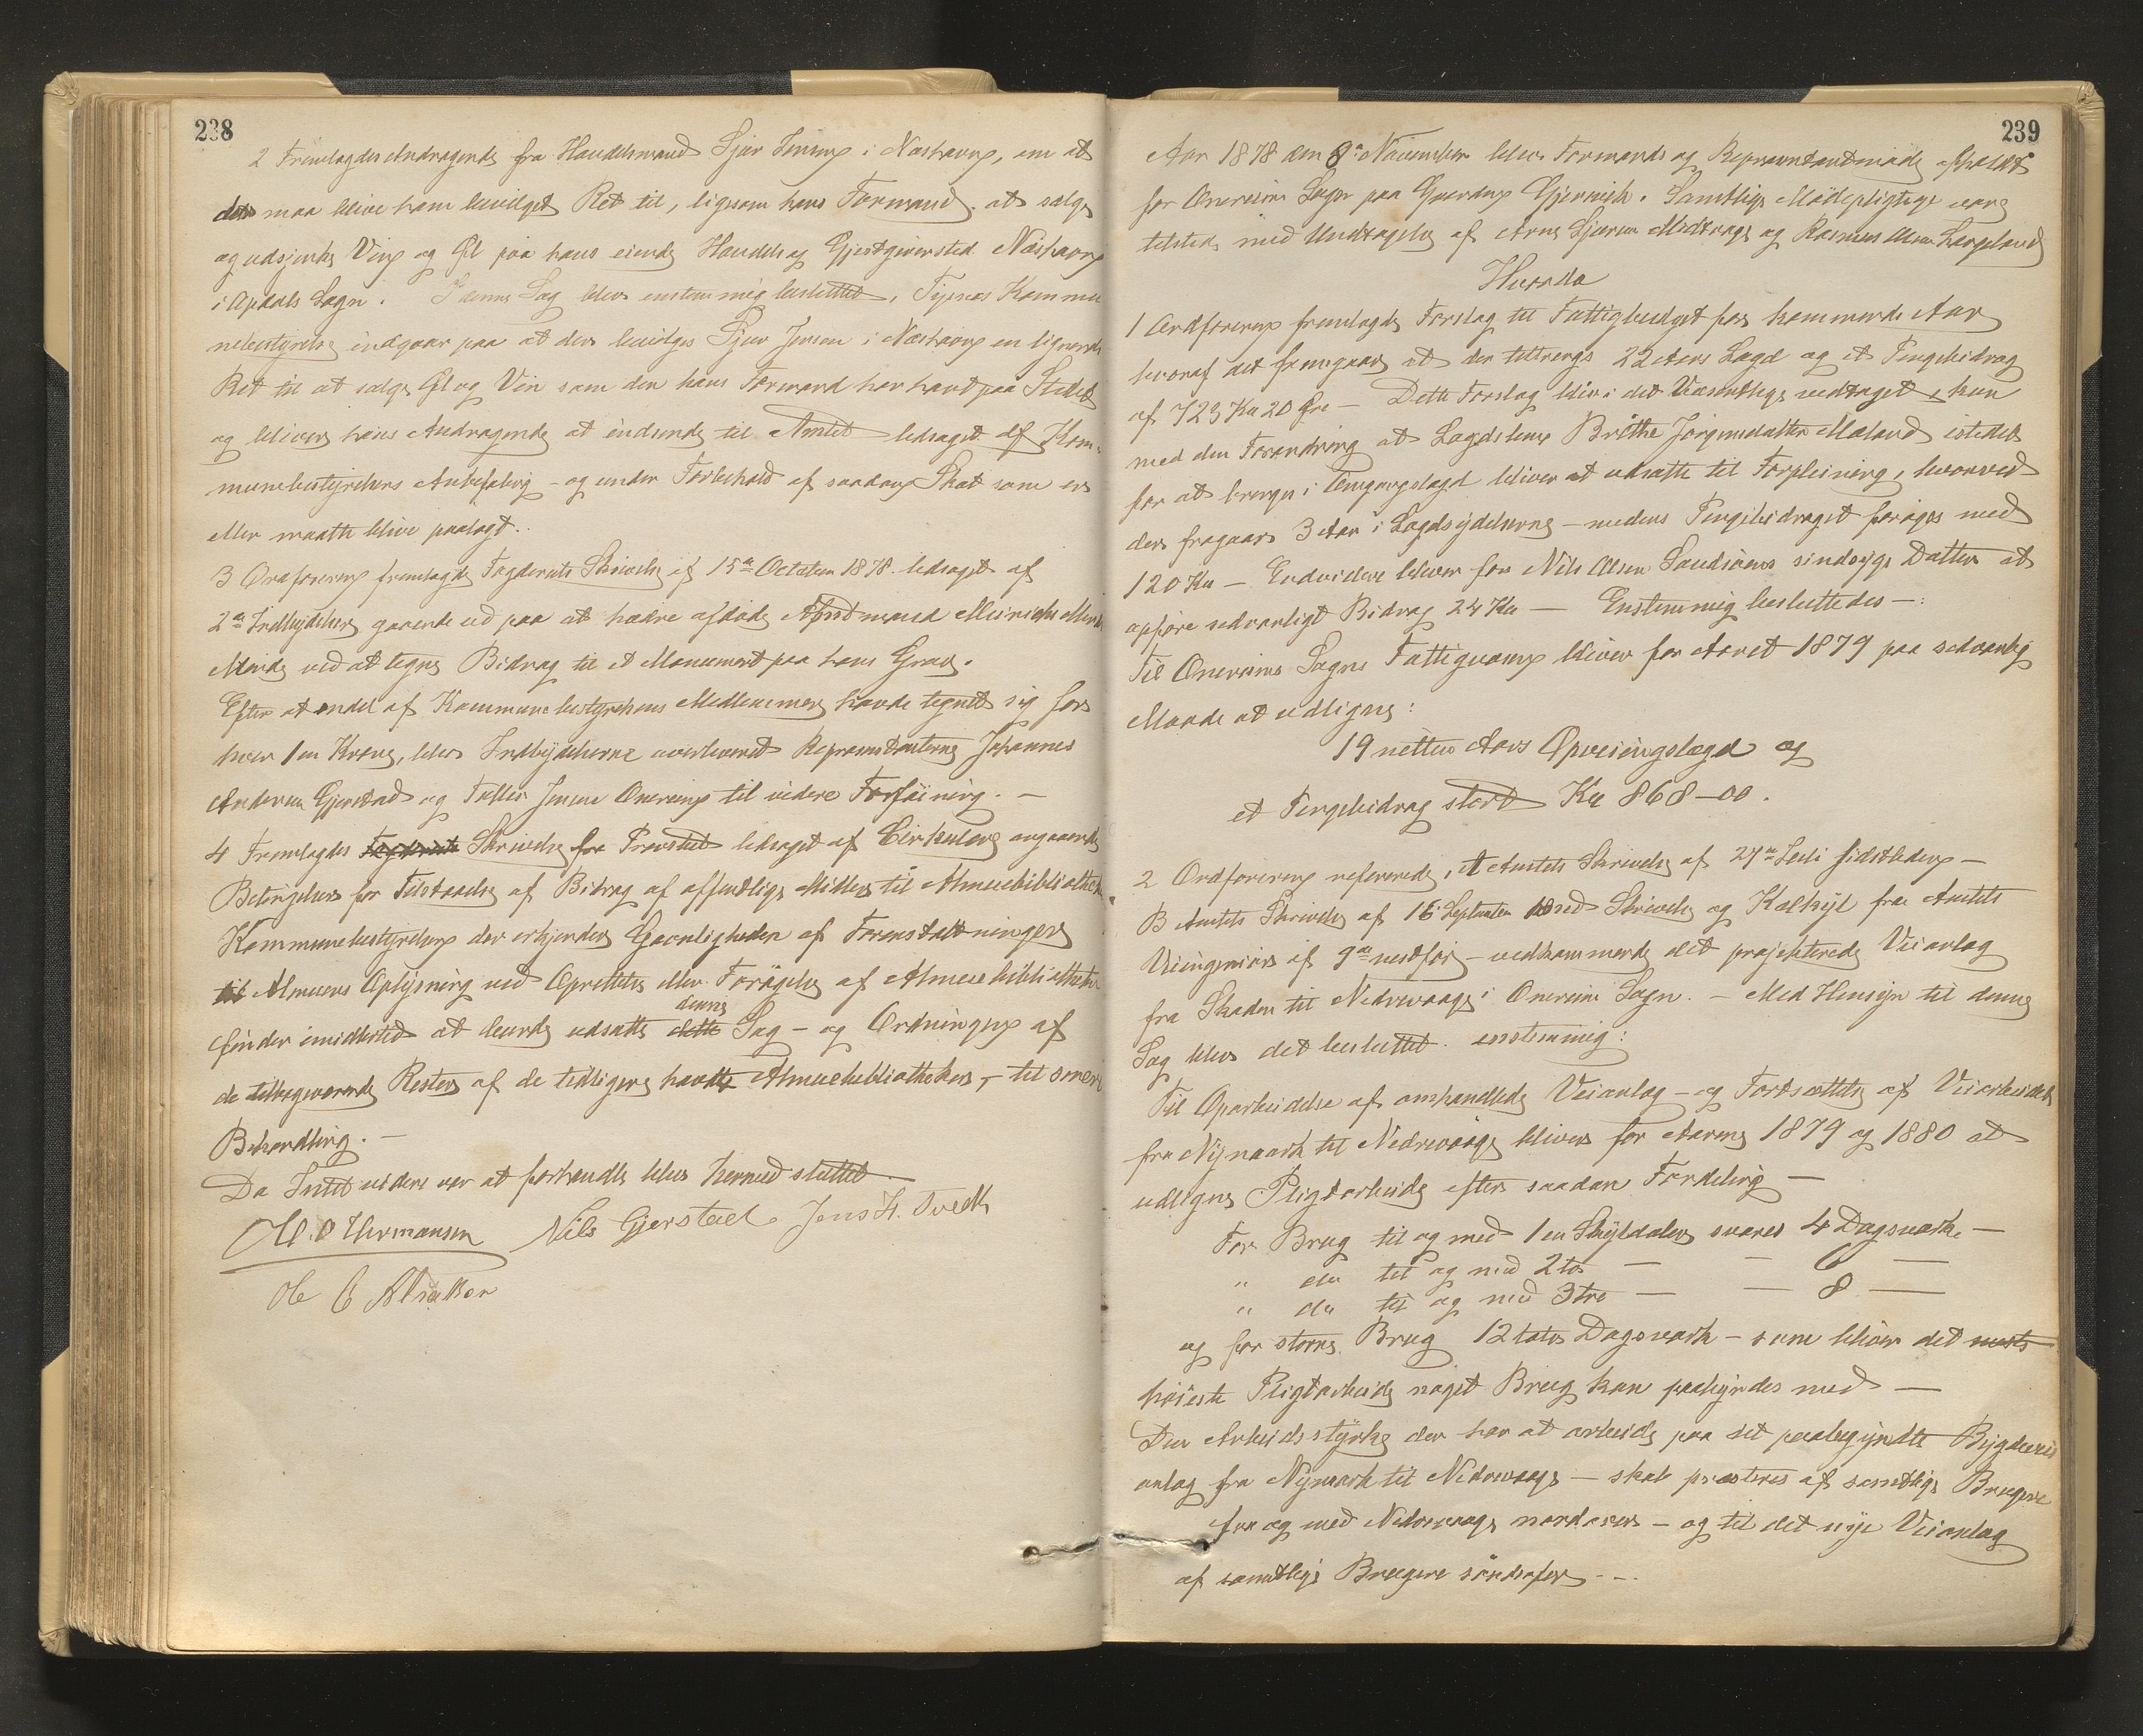 238
2 Fremlagdes Andragende fra Handelsmand Sjur Jensen i Næshavn, om at
det maa blive ham bevilget Ret til, ligesom hans Formand, at sælge
og udsjenke Vin og Øl paa hans eiende Handels og Gjestgiversted Næshavn
i Opdals Sogn. I denne Sag blev enstemmig besluttet, Tysnes Kommu
nebestyrelse indgaar paa at der bevilges Sjur Jensen i Næshavn en lignende
Ret til at sælge Øl og Vin som den hans Formand har havt paa Stedet
og bliver hans Andragende at indsende til Amtet ledsaget af Kom-
munebestyrelsens Anbefaling - og under Forbehold af saadan Skat som er
eller maatte blive paalagt.
3 Ordføreren fremlagde Fogderiets Skrivelse af 15de October 1878 ledsaget af
2de Indbydelser gaaende ud paa at hædre afdøde Amtmand
Minde ved at tegne Bidrag til et Monument paa hans Grav.
Efter at endel af Kommunebestyrelsens Medlemmer havde tegnet sig for
hver 1 en Krone, blev Indbydelserne overleveret Repræsentanterne Johannes
Andersen Gjerstad og Tollev Jensen Onereim til videre Forføining. -
4 Fremlagdes Fogderiets Skrivelse fra Provstiet ledsaget af Cirkulære angaaende
Betingelser for Tilstaaelse af Bidrag af offentlige Midler til Almuebibliothek
Kommunebestyrelsen der erkjender Gavnligheden af Foranstaltninger
til Almuens Oplysning ved Oprettelse eller Forøgelse af Almuebibliotheker
denne
finder imidlertid at burde udsætte dette Sag - og Ordningen af
de tilbageværende Rester af de tidligere havdte Almuebibliotheker - til
Behandling. -
Da Intet videre var at forhandle blev hermed sluttet
M. O Hermansen Nils Gjerstad Jens H. Tvedt
239
Aar 1878 den 8de November blev Formands og Repræsentantmøde afholdt
for Onereims Sogn paa Gaarden Gjernvik. Samtlige Mødepligtige vare
tilstede med Undtagelse af Arne Sjursen Midtvaage og Rasmus Olsen Hougland
Hvorda
1 Ordføreren fremlagde Forslag til Fattigbudget for kommende Aar
hvoraf det fremgaar at der tiltrengs 22 Aars Lægd og et Pengebidrag
af 723 Kr 20 Øre - Dette Forslag blev i det Væsentlige vedtaget, kun
med den Forandring at Lægdslem Brithe Jørgensdatter Mæland istedet
for at bringes i Omgangslægd bliver at udsætte til Forpleining, hvorved
der fragaar 3 Aar i Lægdsydelserne - medens Pengebidraget forøges med
120 Kr - Endvidere bliver for Nils Olsen Sandvigens sindsyge Datter at
opføre sedvanligt Bidrag 24 Kr - Enstemmig besluttedes -:
Til Onereims Sogns Fattigvæsen bliver for Aaret 1879 paa sedvanlig
Maade at udligne:
19 netten Aars Opveiingslægd og
et Pengebidrag stort Kr 868-00.
2 Ordføreren refererede, A Amtets Skrivelse af 27de Juli sidstleden -
B Amtets Skrivelse af 16. September med Skrivelse og Kalkyl fra Amtets
Veiingeniør af 9de nestfør - vedkommende det projekterede Veianlæg
fra Skaden til Nedrevaage i Onereims Sogn. - Med Hensyn til denne
Sag blev det besluttet enstemmig:
Til Oparbeidelse af omhandlede Veianlæg - og Fortsættelse af Veiarbeidet
fra Nymark til Nedrevaage bliver for Aarene 1879 og 1880 at
udligne Pligtarbeide efter saadan Fordeling -
For Brug til og med 1 en Skyldaler svares 4 Dagsværk -
" do til og med 2 to - - 6 -
" do til og med 3 tre - - 8 -
og for større Brug 12 tolv Dagsværk - som bliver det
høieste Pligtarbeide noget Brug kan paabyrdes med -
Den Arbeidsstyrke der har at arbeide paa det paabegyndte Bygdevei
anlæg fra Nymark til Nedrevaage - skal præsteres af samtlige Brugere
fra og med Nedrevaage nordover - og til det nye Veianlæg
af samtlige Brugere søndenfor - -